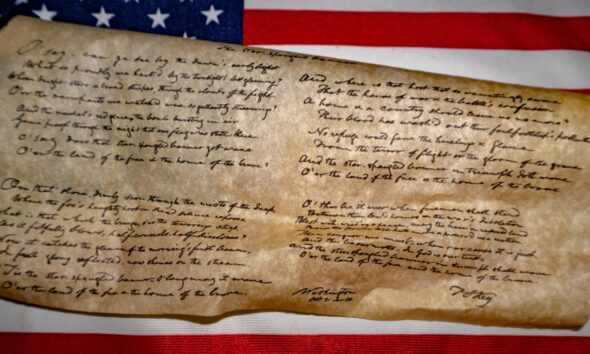 The Star-spangled banner
O say, can you see by the dawn's early light
What so proudly we hail'd by the twilight's last gleaming?
Whose bright stars & broad stripes through the clouds of the fight
O'er the ramparts we watch'd were so gallantly streaming?
And the rocket's red glare, the bomb bursting in air
Gave proof through the night that our flag was still there
O! Say, does that star-spangled banner yet wave
O'er the land of the free & the home of the brave?
On that shore dimly seen through the mists of the deep,
Where the foe's haughty host in dread silence reposes
What is that which the breeze, o'er the towering steep
As it fitfully blows, half conceals, half discloses?
Now it catches the gleam of the morning's first beam,
In full glory reflected, now shines on the stream.
'Tis the star-spangled banner, O long may it wave
O'er the land of the free & the home of the brave.
And where is that host that so vauntingly swore
That the havoc of war & the battle's confusion
A home & a country should leave us no more?
Their blood has wash'd out their foul footstep's pollution
No refuge could save the hireling & slave
From the terror of flight or the gloom of the grave
And the star-spangled banner in triumph doth wave
O'er the land of the free & the home of the brave
O! thus be it ever when freemen shall stand
Between their lov'd homes & the war's desolation
must, when our cause it is just
And the star-spangled banner in triumph shall wave
O'er the land of the free and the home of the brave
Washington
Oct 21 - 40
F S Key